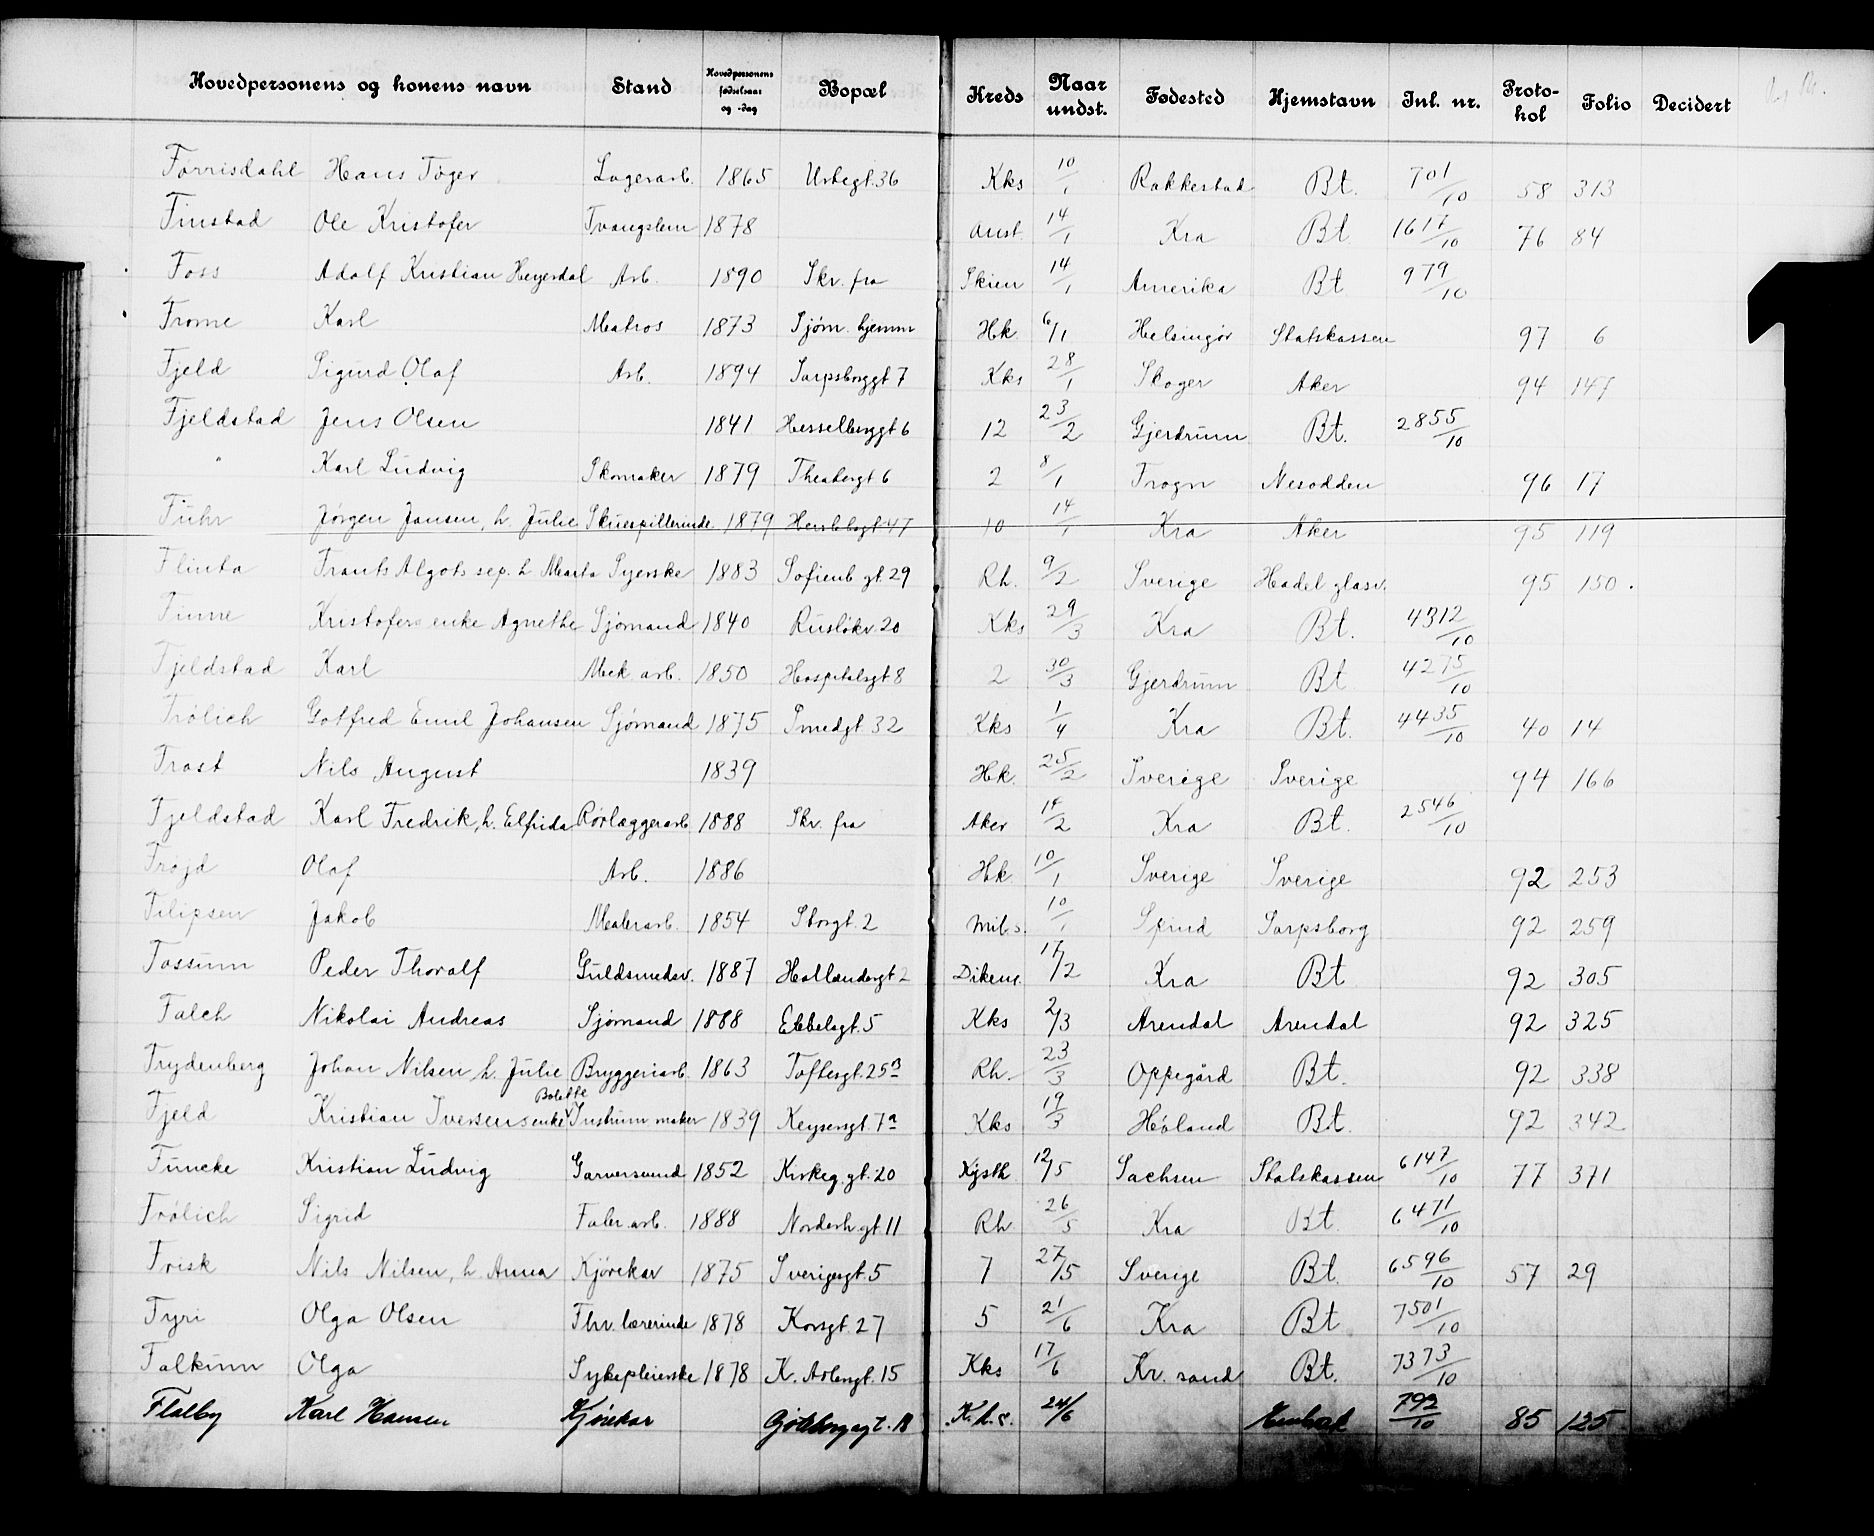 Hovedpersonens og konens navn Stand Hovedpersonens fødselsaar og -dag Bopæl Kreds Naar undst. Fødested Hjemstavn Inl. nr. Protokol Folio Decidert
Førrisdahl Hans Tøger Lagerarb. 1865 Urtegt. 36 Kks 10/1 Rakkestad Bt. 701/10 58 313
Finstad Ole Kristofer Tvangslem 1878 Anst. 14/1 Kra Bt 1617/10 76 84
Foss Adolf Kristian Heyerdal Arb. 1890 Skr. fra Skien 14/1 Amerika Bt 979/10
Frome Karl Matros 1873 Sjøm. hjemm Hk. 6/1 Helsingør Statskassen 97 6
Fjeld Sigurd Olaf Arb. 1894 Sarpsborggt 7 Kks 28/1 Skoger Aker 94 147
Fjeldstad Jens Olsen 1841 Hesselberggt 6 12 23/2 Gjerdrum Bt. 2855/10
" Karl Ludvig Skomaker 1879 Theatergt 6 2 8/1 Frogn Nesodden 96 17
Fuhr Jørgen Jansen, h. Julie Skuespillerinde 1879 Herslebsgt 47 10 14/1 Kra Aker 95 119
Flinta Frants Algots sep. h. Marta Syerske 1883 Sofienb gt. 29 Rh. 9/2 Sverige Hadel glasv. 95 150.
Finne Kristofers enke Agnethe Sjømand 1840 Rusløkv 20 Kks 29/3 Kra Bt. 4312/10
Fjeldstad Karl Mek. arb. 1850 Hospitalsgt 8 2 30/3 Gjerdrum Bt 4275/10
Frølich Gotfred Emil Johansen Sjømand 1875 Smedgt. 32 Kks 1/4 Kra Bt. 4435/10 40 14
Frost Nils August 1839 Hk. 25/2 Sverige Sverige 94 166
Fjeldstad Karl Fredrik, h. Elfrida Rørlæggerarb 1888 Skr. fra Aker 14/2 Kra Bt. 2546/10
Frøjd Olaf Arb. 1886 Hk. 10/1 Sverige Sverige 92 253
Filipsen Jakob Malerarb. 1854 Storgt. 2 Mil.s. 10/1 Spind Sarpsborg 92 259
Fossum Peder Thoralf Guldsmedsv. 1887 Hollændergt 2 Dikem. 17/2 Kra Bt 92 305
Falch Nikolai Andreas Sjømand 1888 Ebbelsgt. 5 Kks 2/3 Arendal Arendal 92 325
Frydenberg Johan Nilsen h. Julie Bryggeriarb. 1863 Toftesgt. 25B Rh. 23/3 Oppegård Bt. 92 338
Bolette
Fjeld Kristian Iversens enke Instrum maker 1839 Keysersgt. 7a Kks 19/3 Høland Bt. 92 342
Funcke Kristian Ludvig Garversvend 1852 Kirkeg. gt. 20 Kysth 12/5 Sachsen Statskassen 6147/10 77 371
Frølich Sigrid Fabr. arb. 1888 Norderh. gt. 11 Rh. 26/5 Kra Bt. 6471/10
Frisk Nils Nilsen, h Anna Kjørekar 1875 Sverigesgt. 5 7 27/5 Sverige Bt. 6596/10 57 29
Fyri Olga Olsen Fhv. lærerinde 1878 Korsgt. 27 5 21/6 Kra Bt 7501/10
Falkum Olga Sykepleierske 1878 K. Aslengt. 15 Kks 17/6 Kr. sand Bt. 7373/10
Flatby Karl Hansen Kjørekar Gøteborggt. 18 K.k.s. 24/6 792/10 85 125